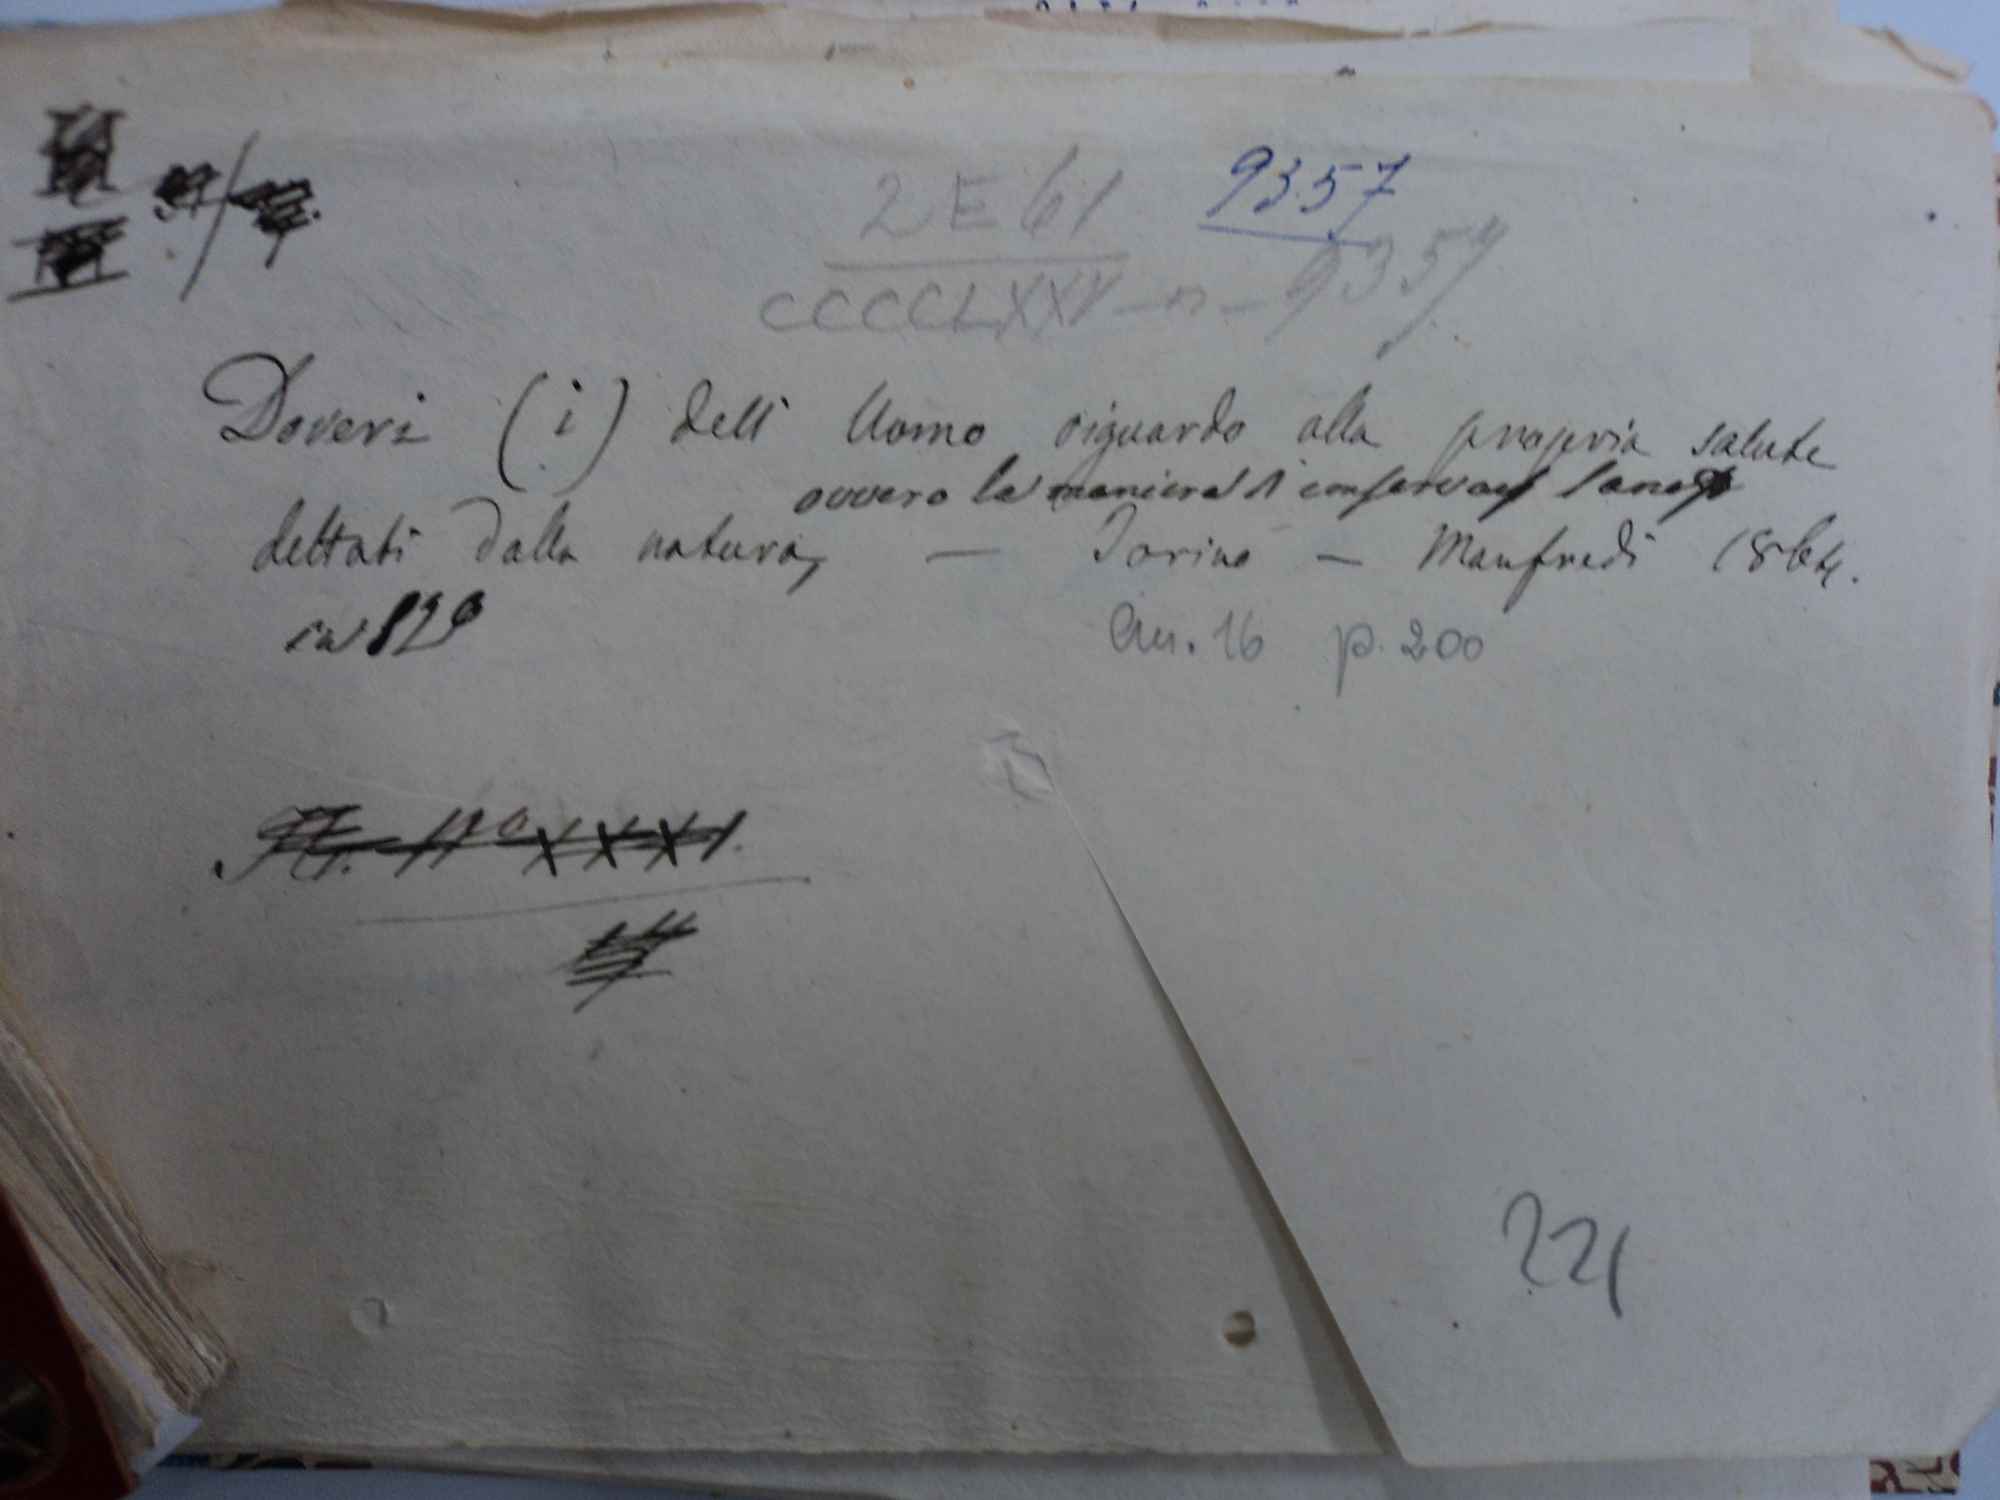 2 E 61
9357
CCCCLXXV - n - 9357
Doveri (i) dell' Uomo riguardo alla propria salute
ovvero la maniera di conservarsi sano
dettati dalla natura, — Torino — Manfredi 1864.
in 12°
cm. 16 p. 200
221